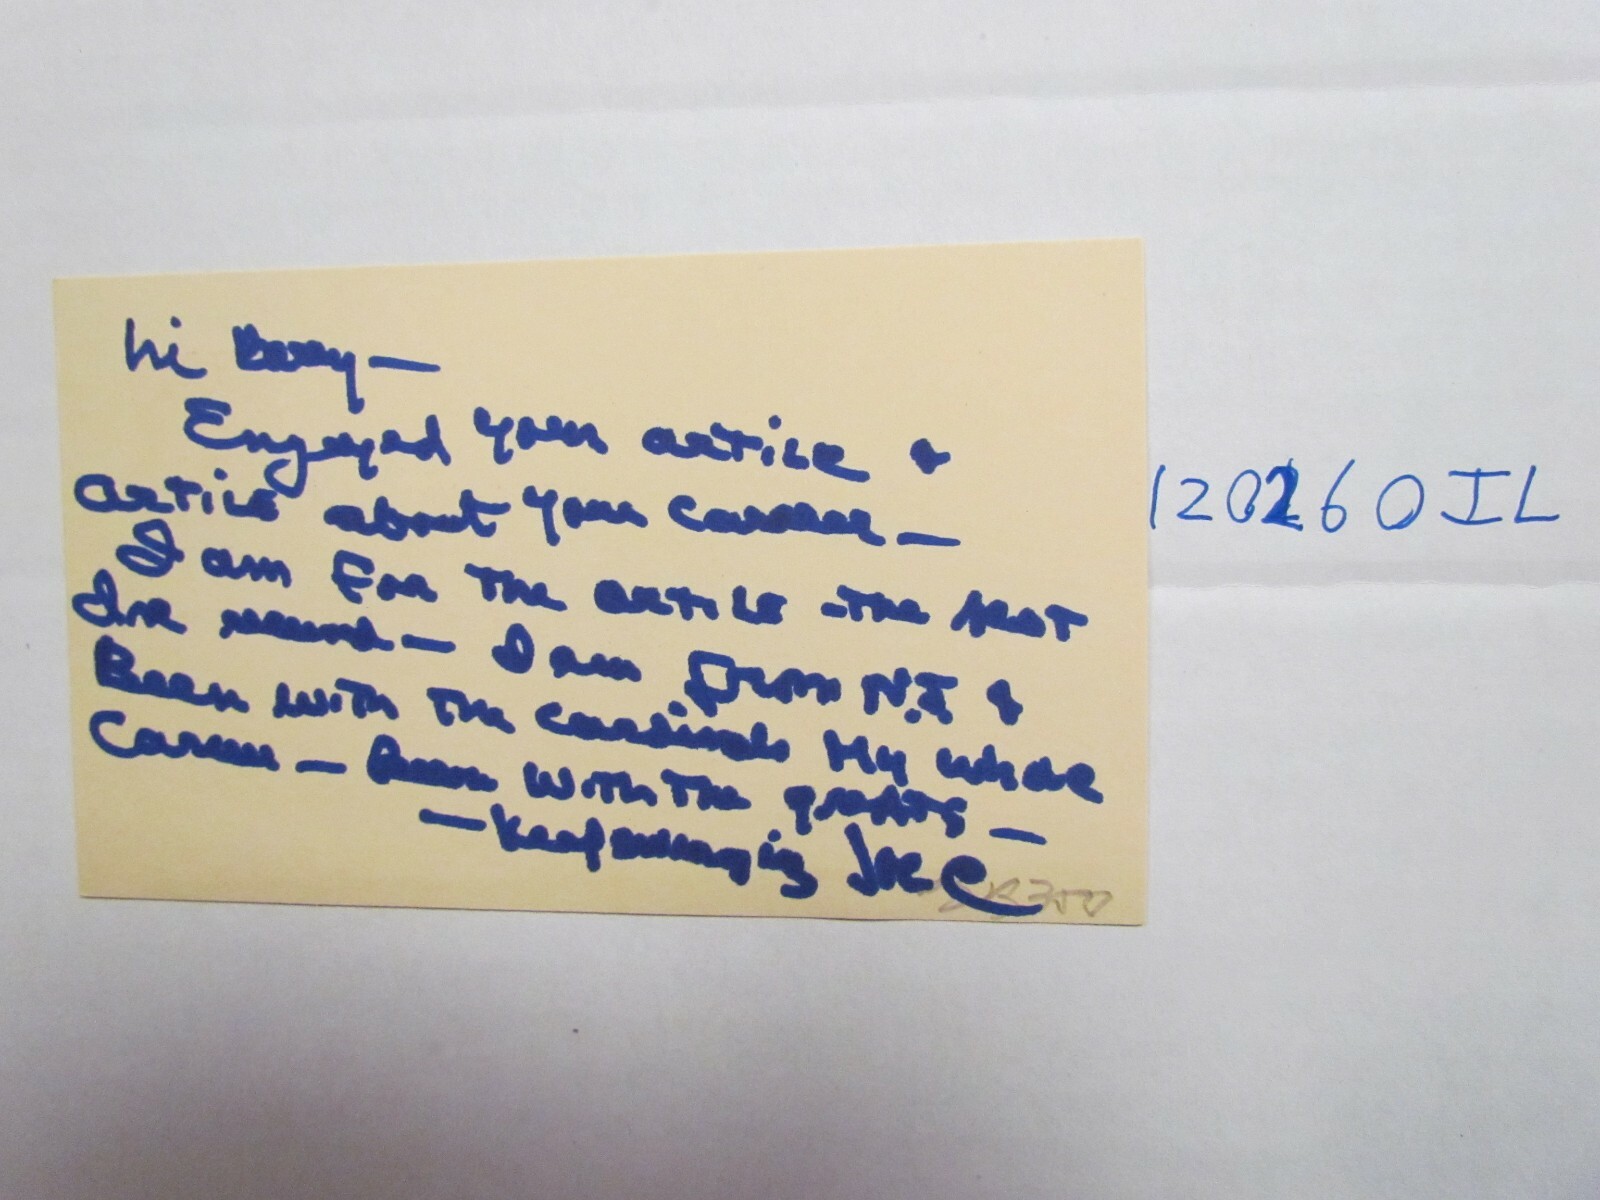 hi Barry —
Engoyed your article &
article about your career —
I am for the article - the first
I've — I am from N.J &
Been with the cardinals My whole
Career — Been with the greats —
— Keep
120260IL